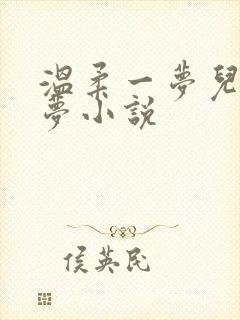 溫柔一夢兒
夢小說
侯英民